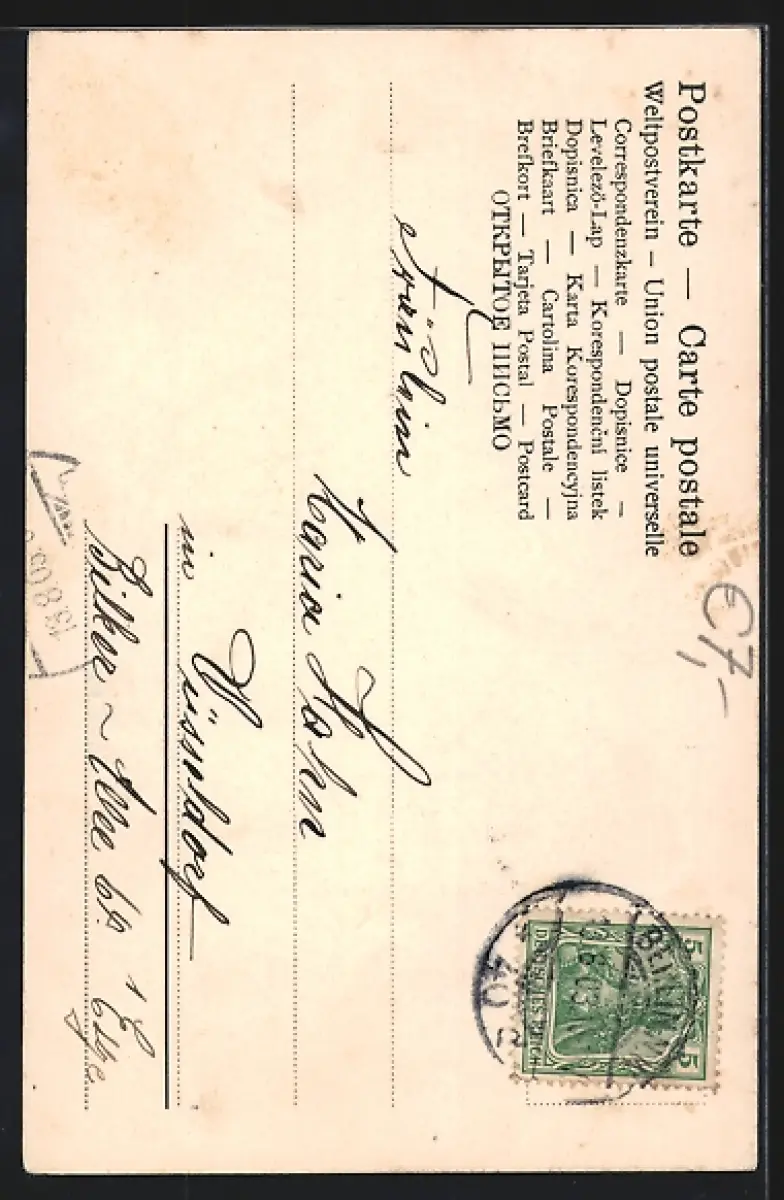 Postkarte — Carte postale
Weltpostverein – Union postale universelle
Correspondenzkarte — Dopisnice –
Levelező-Lap — Korespondenční listek
Dopisnica — Karta Korespondencyjna
Briefkaart — Cartolina Postale —
Brefkort — Tarjeta Postal — Postcard
ОТКРЫТОЕ ПИСЬМО
€7,-
5 5
DEUTSCHES REICH
BERLIN
40
Fräulein
Maria Hohn
in Düsseldorf
Bilker-Allee